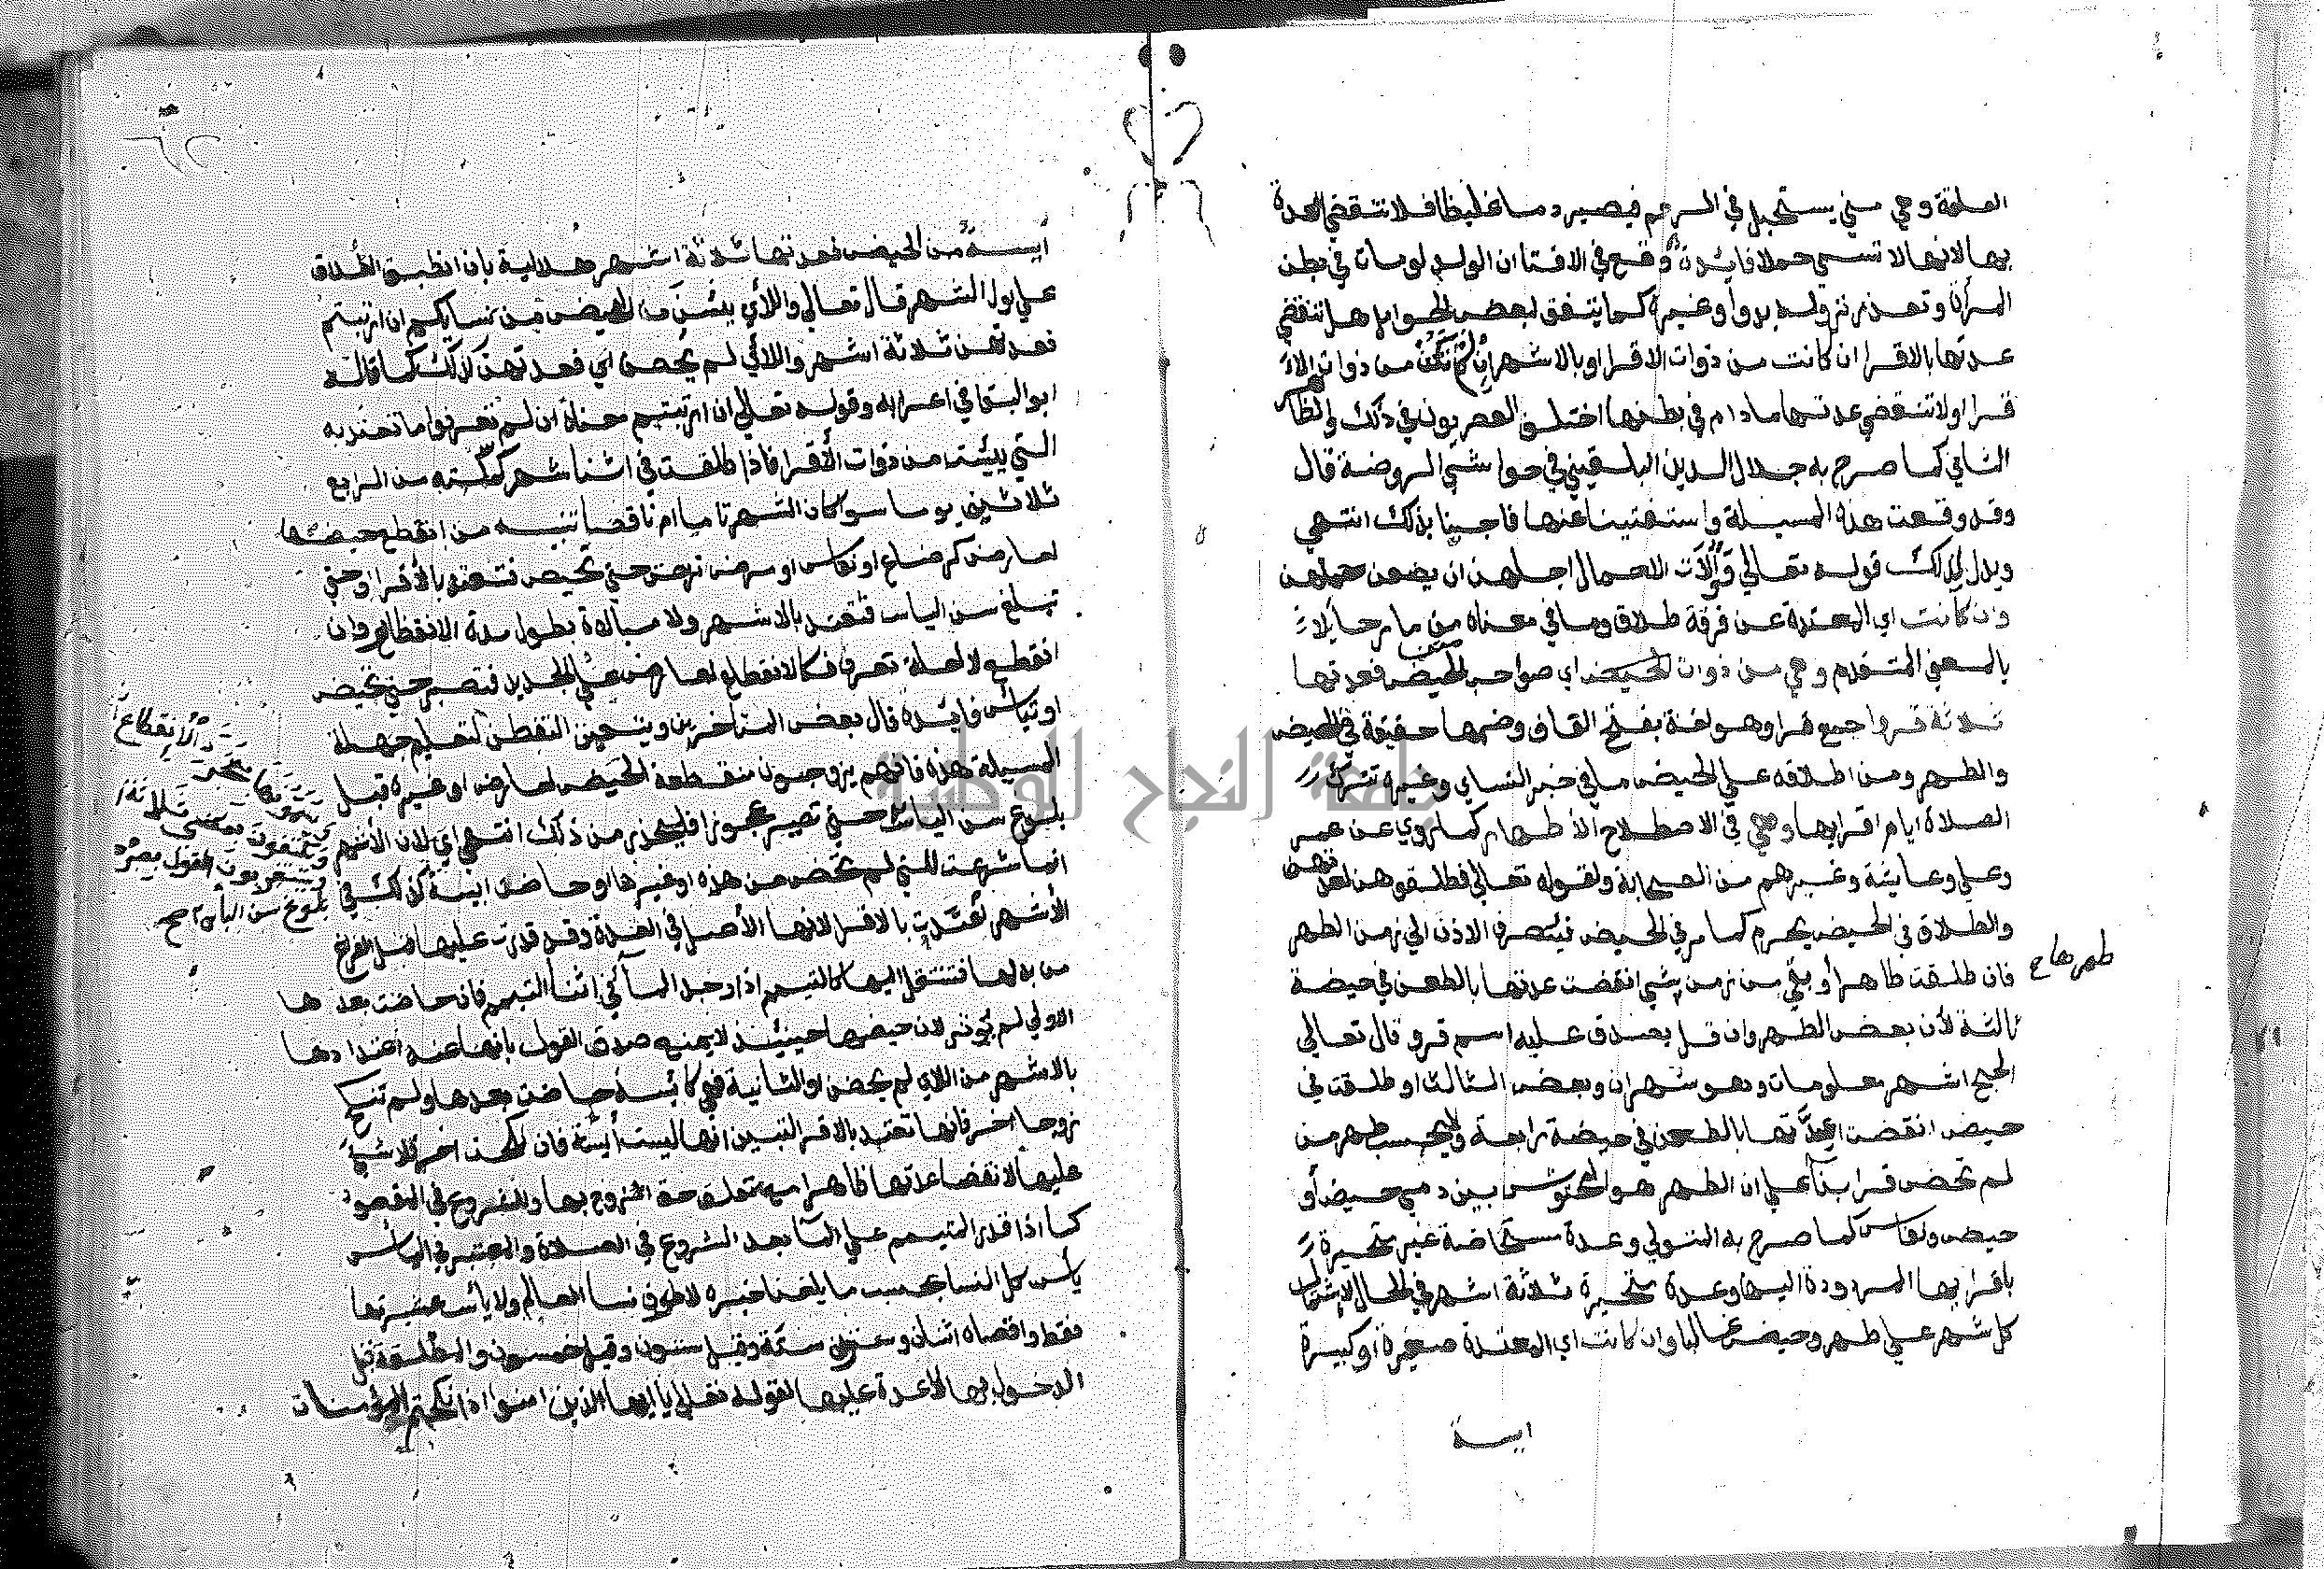 العلقة وهي مني يستحيل في الرحم فيصير دما غليظا فلا تنقضي العدة
بها لانها لا تسمي حملا فايدة وقع في الافتا ان الولد لو مات في بطن
المرأة وتعذر نزوله بدوا وغيره كما يتفق لبعض الحوامل هل تنقضي
عدتها بالاقرا ان كانت من ذوات الاقرا او بالاشهر ان لم تكن من ذوات الا
قرا او لا تنقضي عدتها ما دام في بطنها اختلف العصريون في ذلك والظاهر
الثاني كما صرح به جلال الدين البلقيني في حواشي الروضة قال
وقد وقعت هذه المسيلة واستفتينا عنها فاجبنا بذلك انتهي
ويدل لذلك قوله تعالي وأولات الاحمال اجلهن ان يضعن حملهن
وان كانت اي المعتدة عن فرقة طلاق وما في معناه مما مر حايلا
بالمعني المتقدم وهي من ذوات الحيض اي صواحب الحيض فعدتها
ثلاثة قروا جمع قرا وهو لغة بفتح القاف وضمها حقيقة في الحيض
والطهر ومن اطلاقه علي الحيض ما في خبر النساي وغيره تترك
الصلاة ايام اقرايها وهي في الاصطلاح الاطهار كما روي عن عمر
وعلي وعايشة وغيرهم من الصحابة ولقوله تعالي فطلقوهن لعدتهن
والطلاق في الحيض يحرم كما مر في الحيض فيصرف الاذن الي زمن الطهر
فان طلقت طاهرا وبقي من زمن شي انقضت عدتها بالطعن في حيضة
طهرها صح
ثالثة لأن بعض الطهر وان قل يصدق عليه اسم قرو قال تعالي
الحج اشهر معلومات وهو شهران وبعض الثالث او طلقت في
حيض انقضت عدتها بالطعن في حيضة رابعة ولا يحسب طهر من
لم تحض قرا بنا علي ان الطهر هو المحتوش بين دمي حيض أو
حيض ونفاس كما صرح به المتولي وعدة مستحاضة غير متحيرة
باقرايها المردودة اليها وعدة متحيرة ثلاثة اشهر في الحال لاشتمال
كل شهر علي طهر وحيض غالبا وان كانت اي المعتدة صغيرة أو كبيرة
ايسة
آيسة من الحيض فعدتها ثلاثة اشهر هلالية بان انطبق الطلاق
علي اول الشهر قال تعالي واللائي يئسن من المحيض من نسايكم ان ارتبتم
فعدتهن ثلاثة اشهر واللائي لم يحضن اي فعدتهن كذلك كما قاله
ابو البقا في اعرابه وقوله تعالي ان ارتبتم معناه ان لم تعرفوا ما تعتد به
التي يئست من ذوات الأقرا فاذا طلقت في اثنا شهر كملته من الرابع
ثلاثين يوما سوا كان الشهر تاما ام ناقصا تنبيه من انقطع حيضها
لعارض كرضاع او نفاس او مرض تصبر حتي تحيض فتعتد بالأقرا او حتي
تبلغ سن الياس فتعتد بالاشهر ولا مبالاة بطول مدة الانقطاع وان
انقطع لا لعلة تعرف فكالانقطاع لعارض علي الجديد فتصبر حتي تحيض
او تيأس فايدة قال بعض المتاخرين ويتعين التفطن لتعليم جهلة
المسيلة هذه فانهم يزوجون منقطعة الحيض لعارض او غيره قبل
بلوغ سن الياس حتي تصير عجوزا فليحذر من ذلك انتهي اي لان الأشهر
انما شرعت للتي لم تحض من هذه او غيرها او حاضت ايسة كذلك في
الأشهر تعتدت بالاقرا لانها الأصل في العدة وقد قدرت عليها قبل الفراغ
من بدلها فتنتقل اليها كالتيمم اذا وجد الما في اثنا التيمم فان حاضت بعدها
الاولي لم يؤثر لان حيضها حينئذ لا يمنع صدق القول بانها عند اعتدادها
بالاشهر من اللاي لم يحضن او الثانية فهي كائسة حاضت بعدها ولم تنكح
زوجا اخر فانها تعتد بالاقرا لتبين انها ليست أيسة فان نكحت اخر فلا شي
عليها لانقضا عدتها ظاهرا مع تعلق حق الزوج بها والشروع في المقصود
كما اذا قدر المتيمم علي الما بعد الشروع في الصلاة والمعتبر في الياس
يأس كل النسا بحسب ما يلغنا خبره لا طوف نسا العالم ولا يأس عشيرتها
فقط واقصاه اثنان وستون سنة وقيل ستون وقيل خمسون والمطلقة قبل
الدخول بها لا عدة عليها لقوله تعالي يا ايها الذين امنوا اذا نكحتم المؤمنات
الانقطاع
بلوغ سن اليأس صح
جامعة النجاح الوطنية